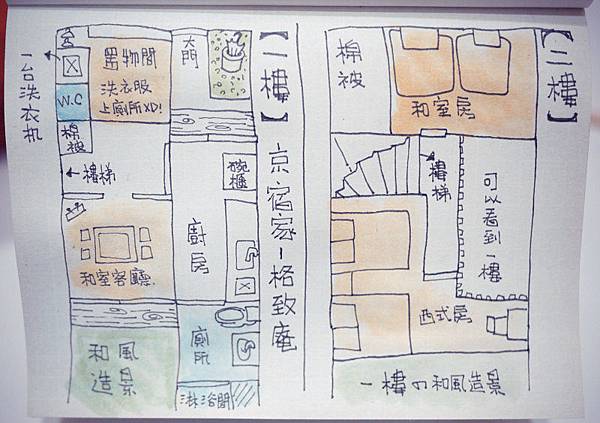 【一樓】
京宿家-格致庵
大門
置物間
洗衣服
上廁所XD!
W.C
一台洗衣机
棉被
樓梯
碗櫃
廚房
和室客廳
廁所
和風
造景
淋浴間
【二樓】
棉被
和室房
樓梯
可以看到一樓
西式房
一樓の和風造景